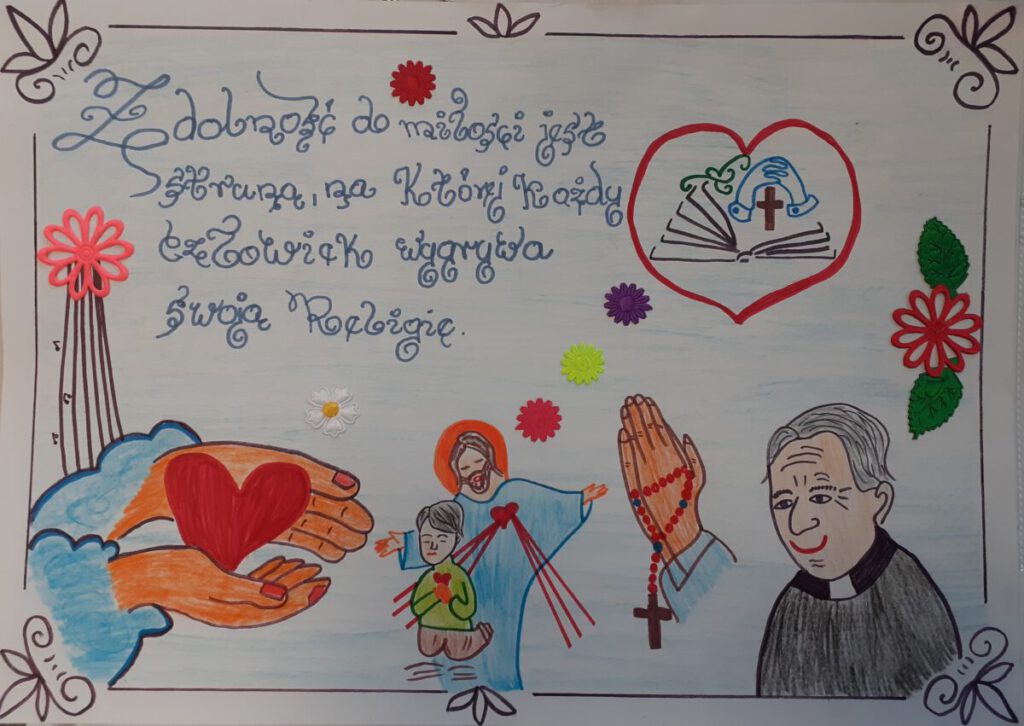 Zdolność do miłości jest
struną, na której każdy
człowiek wygrywa
swoją Religię.